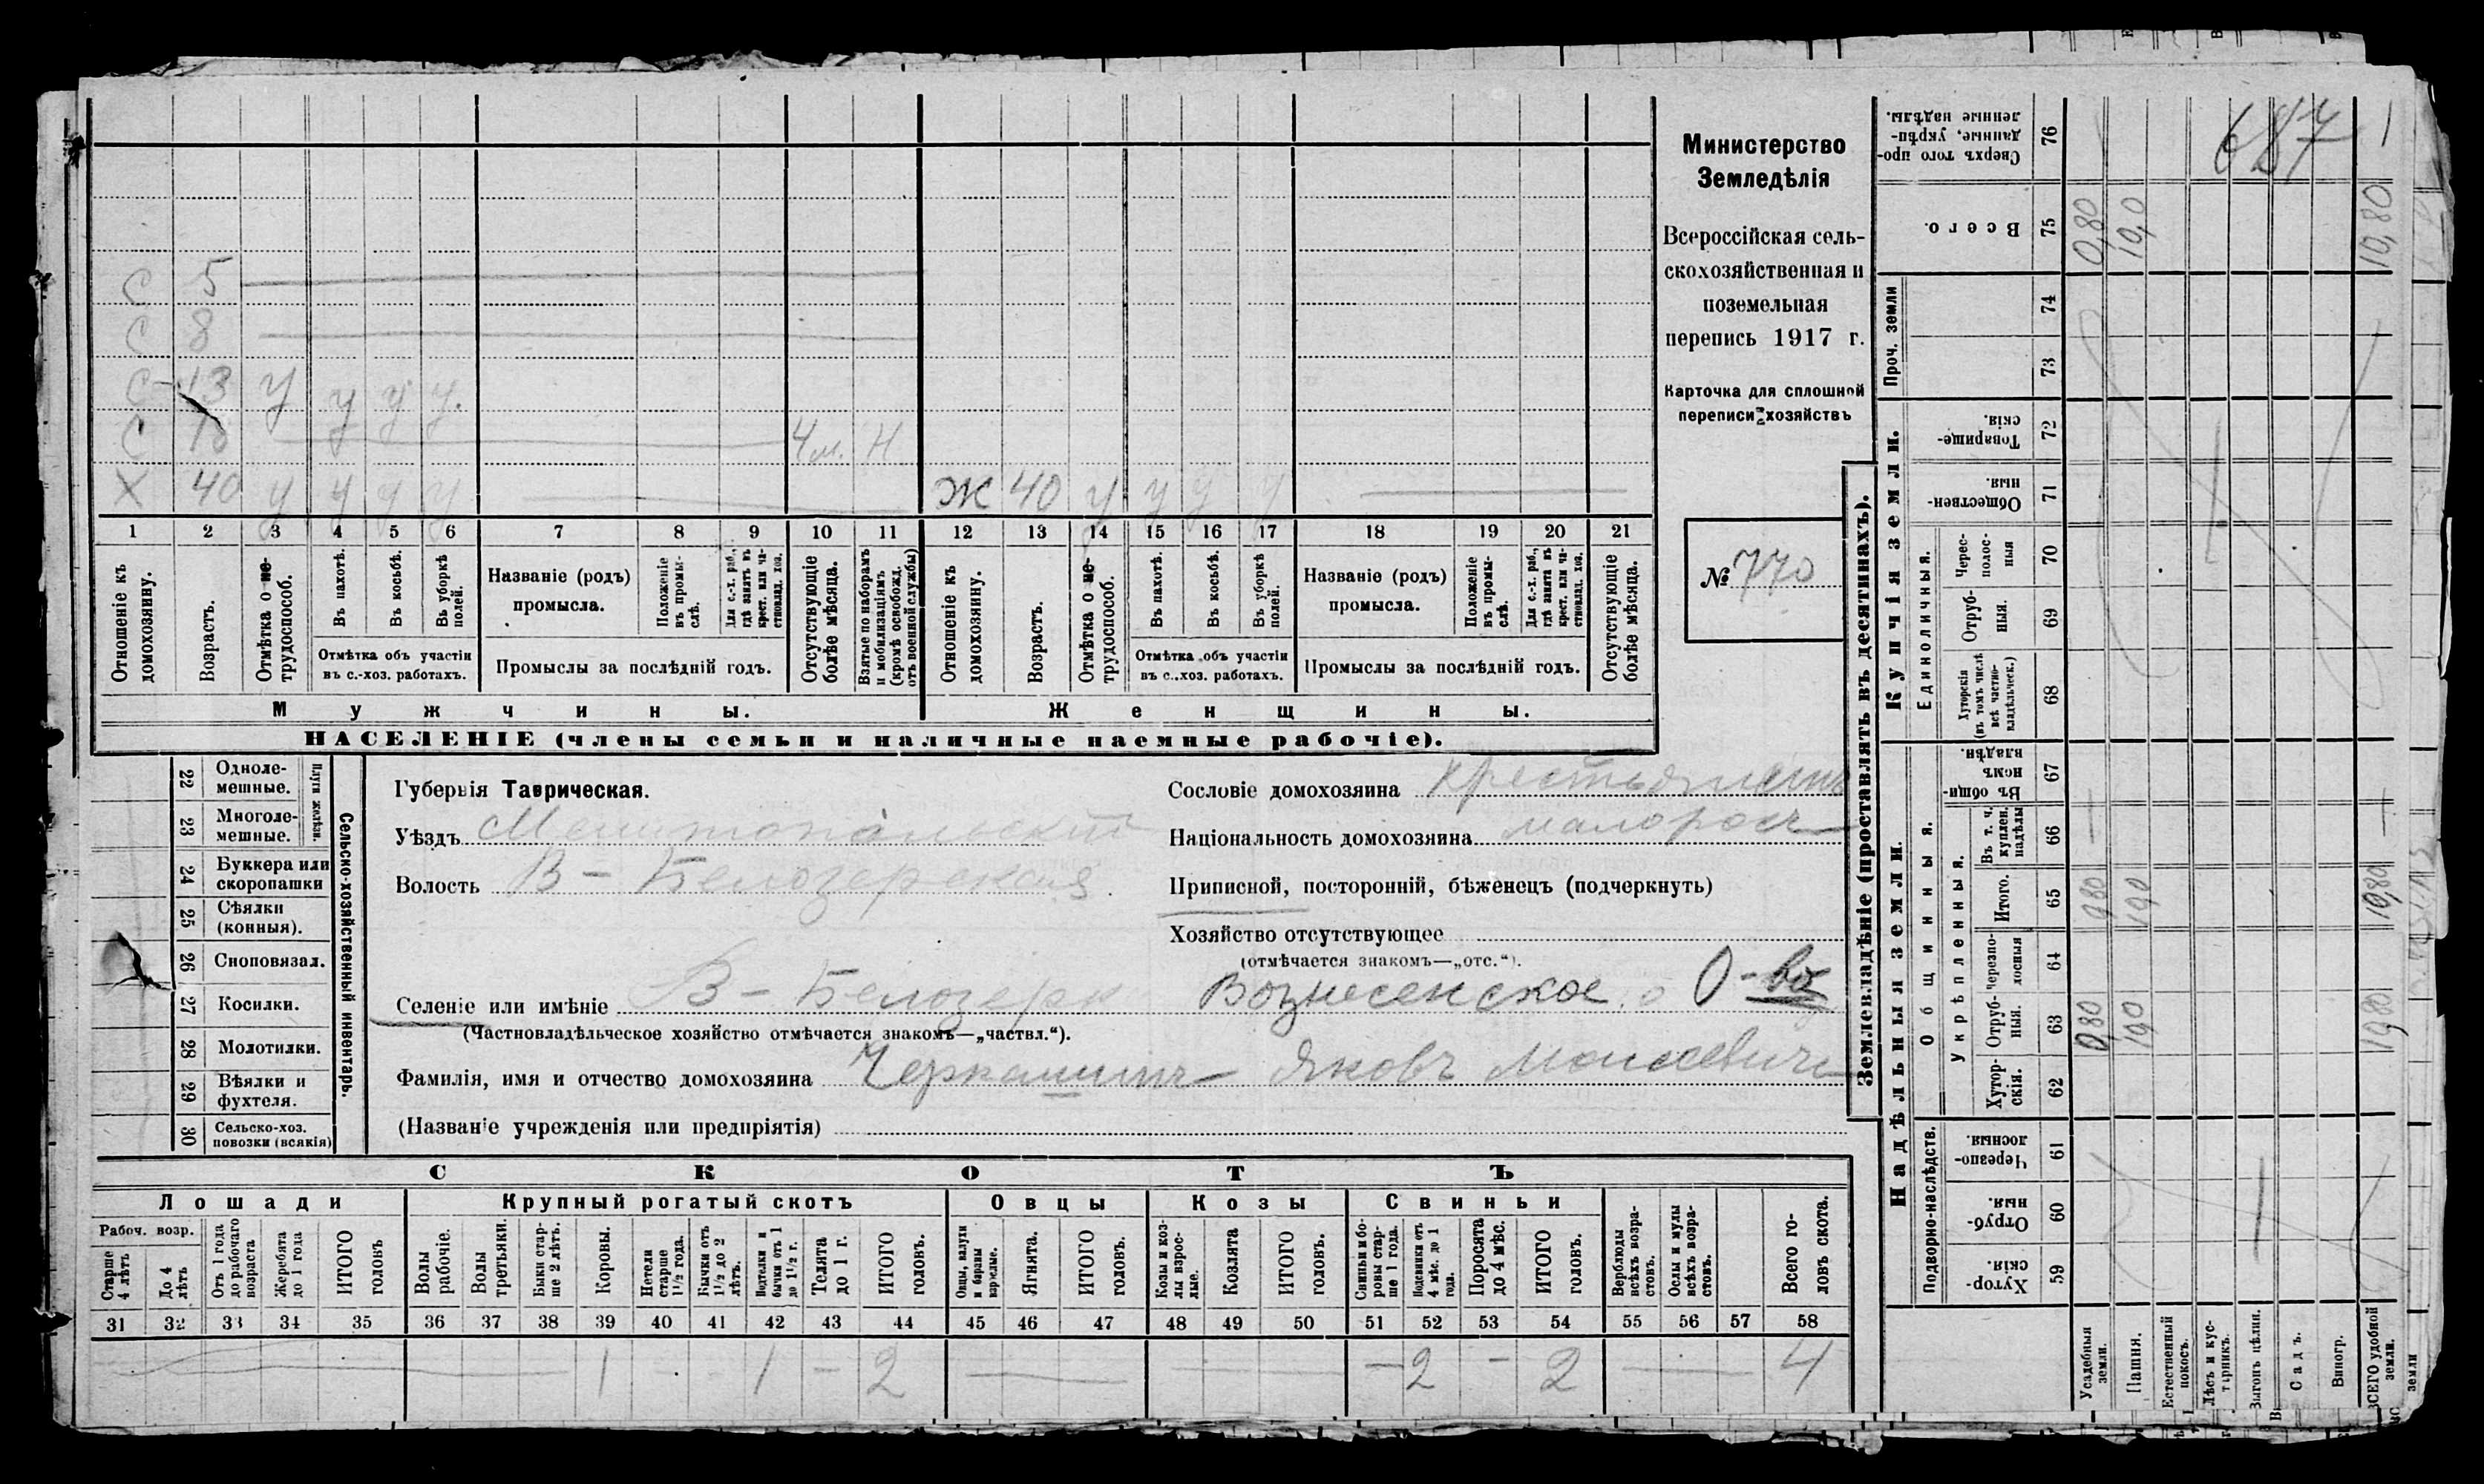 С 5
С 8
С 13 у у у у.
С 18 4 м. Н
Х 40 у у у у Ж 40 у у у у
1 2 3 4 5 6 7 8 9 10 11 12 13 14 15 16 17 18 19 20 21
Отношеніе къ домохозяину.
Возрастъ.
Отмѣтка о не-трудоспособ.
Въ пахотѣ.
Въ косьбѣ.
Въ уборкѣ полей.
Отмѣтка объ участіи
въ с.-хоз. работахъ.
Названіе (родъ)
промысла.
Положеніе въ промы-слѣ.
Для с.-х. раб., гдѣ занятъ въ крест. или ча-стновлад. хоз.
Промыслы за послѣдній годъ.
Отсутствующіе болѣе мѣсяца.
Взятые по наборамъ и мобилизаціямъ (кромѣ освобожд. отъ военной службы)
Отношеніе къ домохозяину.
Возрастъ.
Отмѣтка о не-трудоспособ.
Въ пахотѣ.
Въ косьбѣ.
Въ уборкѣ полей.
Отмѣтка объ участіи
въ с.-хоз. работахъ.
Названіе (родъ)
промысла.
Положеніе въ промы-слѣ.
Для с.-х. раб., гдѣ занята въ крест. или ча-стновлад. хоз.
Промыслы за послѣдній годъ.
Отсутствующіе болѣе мѣсяца.
Мужчины. Женщины.
НАСЕЛЕНІЕ (члены семьи и наличные наемные рабочіе).
Министерство
Земледѣлія
Всероссійская сель-
скохозяйственная и
поземельная
перепись 1917 г.
Карточка для сплошной
переписи хозяйствъ
№ 770
22 Одноле-мешные.
23 Многоле-мешные.
Плуги желѣзн.
24 Буккера или скоропашки
25 Сѣялки (конныя).
26 Сноповязал.
27 Косилки.
28 Молотилки.
29 Вѣялки и фухтеля.
30 Сельско-хоз. повозки (всякія)
Сельско-хозяйственный инвентарь.
Губернія Таврическая.
Уѣздъ Мелитопольский
Волость В-Белозерская
Селеніе или имѣніе В-Белозерка Вознесенское О-во
(Частновладѣльческое хозяйство отмѣчается знакомъ—„частвл.“).
Фамилія, имя и отчество домохозяина Яковъ Моисеевичъ
(Названіе учрежденія или предпріятія)
Сословіе домохозяина крестьянинъ
Національность домохозяина малороссъ
Приписной, посторонній, бѣженецъ (подчеркнуть)
Хозяйство отсутствующее
(отмѣчается знакомъ—„отс.“).
СКОТЪ
Лошади Крупный рогатый скотъ Овцы Козы Свиньи
Рабоч. возр.
Старше 4 лѣтъ
До 4 лѣтъ
Отъ 1 года до рабочаго возраста
Жеребята до 1 года
ИТОГО головъ
Волы рабочіе.
Волы третьяки.
Быки стар-ше 2 лѣтъ.
Коровы.
Нетели старше 1½ года.
Бычки отъ 1½ до 2 лѣтъ.
Подтелки и бычки отъ 1 до 1½ г.
Телята до 1 г.
ИТОГО головъ.
Овцы, валухи и бараны взрослые.
Ягнята.
ИТОГО головъ.
Козы и коз-лы взрос-лые.
Козлята
ИТОГО головъ.
Свиньи и бо-ровы стар-ше 1 года.
Подсвинки отъ 4 мѣс. до 1 года.
Поросята до 4 мѣс.
ИТОГО головъ.
Верблюды всѣхъ возра-стовъ.
Ослы и мулы всѣхъ возра-стовъ.
Всего го-ловъ скота.
31 32 33 34 35 36 37 38 39 40 41 42 43 44 45 46 47 48 49 50 51 52 53 54 55 56 57 58
— 1 - 1 - 2 — — - 2 - 2 — 4
Землевладѣніе (проставлять въ десятинахъ).
Надѣльныя земли.
Купчія земли.
Проч. земли
Подворно-наслѣдств.
Общинныя.
Укрѣпленныя.
Единоличныя.
Сверхъ того про-данные, укрѣп-ленные надѣлы. 76
Всего. 75
74
73
Товарище-скія. 72
Обществен-ныя. 71
Черес-полос-ныя 70
Отруб-ныя. 69
Хуторскія (въ томъ числѣ всѣ частно-владѣльческ.) 68
Въ общи-номъ владѣн. 67
Въ т. ч. куплен. надѣлы 66
Итого. 65
Черезпо-лосныя 64
Отруб-ныя. 63
Хутор-скія. 62
Черезпо-лосныя. 61
Отруб-ныя. 60
Хутор-скія. 59
Усадебныя земли.
Пашня.
Естественный покосъ.
Лѣсъ и кус-тарникъ.
Выгонъ цѣлин.
Садъ.
Виногр.
ВСЕГО удобной земли.
687
0,80 10,0 10,80
0,80 10,0 10,80
0,80 10,0 10,80